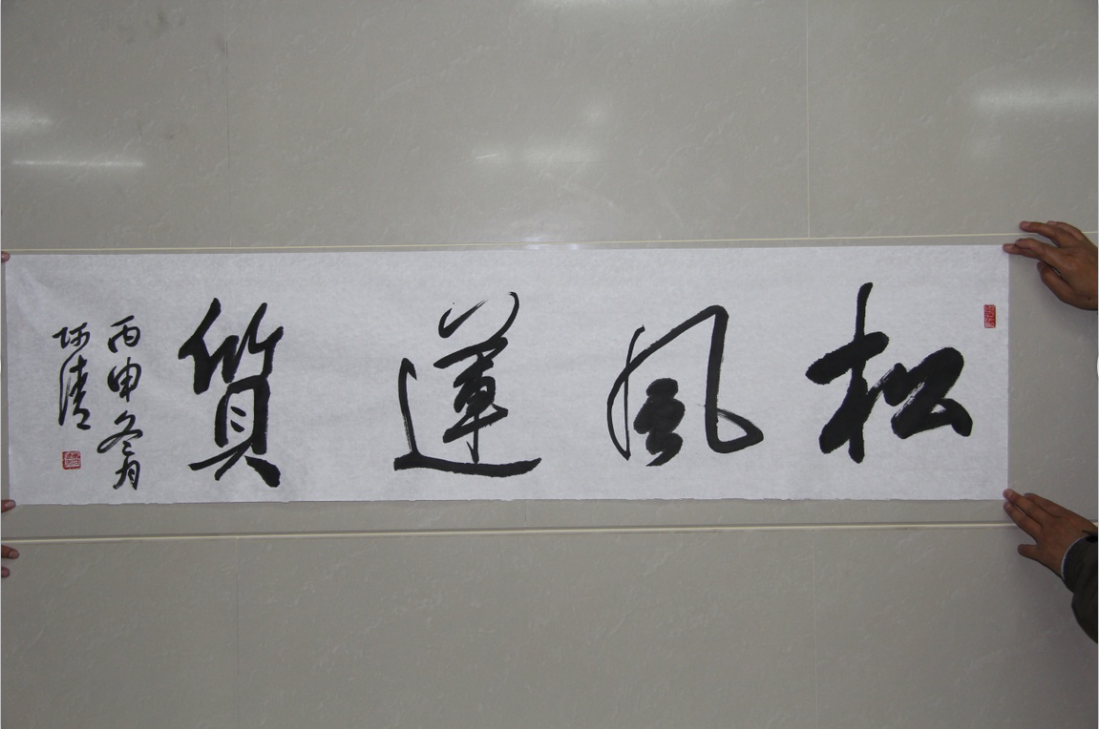 松風蓮質
丙申冬月
阿清